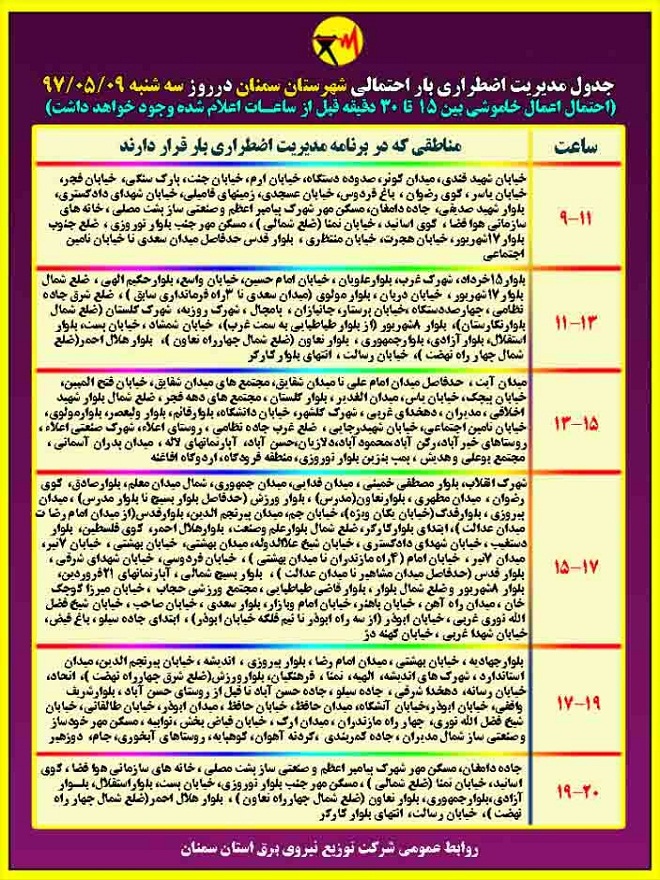 جدول مدیریت اضطراری بار احتمالی شهرستان سمنان درروز سه شنبه ۹۷/۰۵/۰۹
(احتمال اعمال خاموشی بین ۱۵ تا ۳۰ دقیقه قبل از ساعات اعلام شده وجود خواهد داشت)
ساعت
مناطقی که در برنامه مدیریت اضطراری بار قرار دارند
۹-۱۱
خیابان شهید قندی، میدان کوثر، صددوده دستگاه، خیابان ارم، خیابان جنت، پارک سنگی، خیابان فجر،
خیابان یاسر، کوی رضوان ، باغ فردوس، خیابان عسجدی، زمینهای فامیلی، خیابان شهدای دادگستری،
بلوار شهید صدیقی، جاده دامغان، مسکن مهر شهرک پیامبر اعظم و صنعتی ساز پشت مصلی ، خانه های
سازمانی هوا فضا ، کوی اساتید ، خیابان نمتا (ضلع شمالی ) ، مسکن مهر جنب بلوار نوروزی ، ضلع جنوب
بلوار ۱۷شهریور، خیابان هجرت، خیابان منتظری ، بلوار قدس حدفاصل میدان سعدی تا خیابان تامین
اجتماعی
۱۱-۱۳
بلوار۱۵خرداد، شهرک غرب، بلوارعلویان ، خیابان امام حسین، خیابان واسع، بلوارحکیم الهی ، ضلع شمال
بلوار ۱۷شهریور ، خیابان دربان ، بلوار مولوی (میدان سعدی تا ۳راه فرمانداری سابق ) ، ضلع شرق جاده
نظامی ، چهارصددستگاه، خیابان پرستار، جانبازان ، پامچال ، شهرک روزیه، شهرک گلستان (ضلع شمال
بلوارنگارستان)، بلوار ۸شهریور (از بلوار طباطبایی به سمت غرب)، خیابان شمشاد ، خیابان بست، بلوار
استقلال، بلوار آزادی، بلوارجمهوری ، بلوار تعاون (ضلع شمال چهارراه تعاون ) ، بلوار هلال احمر(ضلع
شمال چهار راه نهضت )، خیابان رسالت ، انتهای بلوار کارگر
۱۳-۱۵
میدان آیت ، حدفاصل میدان امام علی تا میدان شقایق، مجتمع های میدان شقایق، خیابان فتح المبین،
خیابان پیچک، خیابان یاس، میدان الغدیر ، بلوار گلستان ، مجتمع های دهه فجر، ضلع شمال بلوار شهید
اخلاقی ، مدیران ، دهخدای غربی ، شهرک گلشهر، خیابان دانشگاه، بلوارقائم، بلوار ولیعصر، بلوارمولوی،
خیابان تامین اجتماعی، خیابان شهیدرجایی ، ضلع غرب جاده نظامی ، روستای اعلاء، شهرک صنعتی اعلاء،
روستاهای خیرآباد، رکن آباد،محمودآباد،دلازیان،حسن آباد، آپارتمانهای لاله ، میدان پدران آسمانی ،
مجتمع بوعلی و هدیش ، پمپ بنزین بلوار نوروزی، منطقه فرودگاه، اردوگاه افاغنه
۱۵-۱۷
شهرک انقلاب، بلوار مصطفی خمینی ، میدان فدایی، میدان جمهوری، شمال میدان معلم، بلوارصادق، کوی
رضوان ، میدان مطهری ، بلوارتعاون(مدرس) ، بلوار ورزش (حدفاصل بلوار بسیج تا بلوار مدرس) ، میدان
پیروزی ، بلوارفدک(خیابان یگان ویژه)، خیابان جم، میدان پیرنجم الدین، بلوارقدس(از میدان امام رضا ت
میدان عدالت )، ابتدای بلوارکارگر، ضلع شمال بلوارعلم وصنعت، بلوارهلال احمر، کوی فلسطین، بلوار
دستغیب ، خیابان شهدای دادگستری ، خیابان شیخ علاالدوله، میدان بهشتی، خیابان بهشتی ، خیابان ۷تیر،
میدان ۷تیر، خیابان امام (۴راه مازندران تا میدان بهشتی ) ، خیابان فردوسی، خیابان شهدای شرقی ،
بلوار قدس (حدفاصل میدان مشاهیر تا میدان عدالت ) ، بلوار بسیج شمالی ، آپارتمانهای ۲۱فروردین،
بلوار ۸شهریور و ضلع شمال بلوار ، بلوار قاضی طباطبایی ، مجتمع ورزشی حجاب ، خیابان میرزا کوچک
خان ، میدان راه آهن ، خیابان باهنر، خیابان امام وبازار، بلوار سعدی ، خیابان صاحب ، خیابان شیخ فضل
الله نوری غربی ، خیابان ابوذر (از سه راه ابوذر تا نیم فلکه خیابان ابوذر) ، ابتدای جاده سیلو، باغ فیض،
خیابان شهدا غربی ، خیابان کهنه دژ
۱۷-۱۹
بلوارجهادیه ، خیابان بهشتی ، میدان امام رضا ، بلوار پیروزی ، اندیشه ، خیابان پیرنجم الدین، میدان
استاندارد ، شهرک های اندیشه، الهیه، نمتا ، فرهنگیان، بلوارورزش(ضلع شرق چهارراه نهضت )، اتحاد،
خیابان رسانه، دهخدا شرقی ، جاده سیلو ، جاده حسن آباد تا قبل از روستای حسن آباد ، بلوارشریف
واقفی، خیابان ابوذر،خیابان آتشگاه، میدان حافظ، خیابان حافظ ، میدان ابوذر، خیابان طالقانی، خیابان
شیخ فضل الله نوری، چهار راه مازندران ، میدان ارک ، خیابان فیاض بخش ، توابیه ، مسکن مهر خودساز
و صنعتی ساز شمال مدیران ، جاده کمربندی ،گردنه آهوان، کوهپایه، روستاهای آبخوری، جام، دوزهیر
۱۹-۲۰
جاده دامغان، مسکن مهر شهرک پیامبر اعظم و صنعتی ساز پشت مصلی ، خانه های سازمانی هوا فضا ، کوی
اساتید ، خیابان نمتا (ضلع شمالی ) ، مسکن مهر جنب بلوار نوروزی، خیابان بست، بلواراستقلال، بلـوار
آزادی،بلوارجمهوری ، بلوار تعاون (ضلع شمال چهارراه تعاون ) ، بلوار هلال احمر(ضلع شمال چهار راه
نهضت )، خیابان رسالت، انتهای بلوار کارگر
روابط عمومی شرکت توزیع نیروی برق استان سمنان